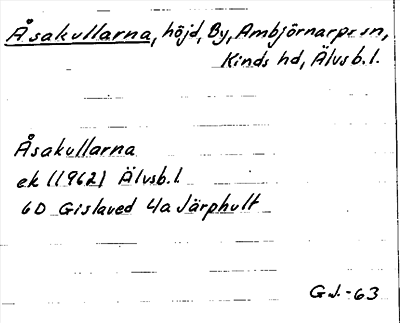 Åsakullarna, höjd, By, Ambjörnarps sn,
Kinds hd, Älvsb.l.
Åsakullarna
ek (1962) Älvsb.l.
6D Gislaved 4a Järphult
G.J. -63